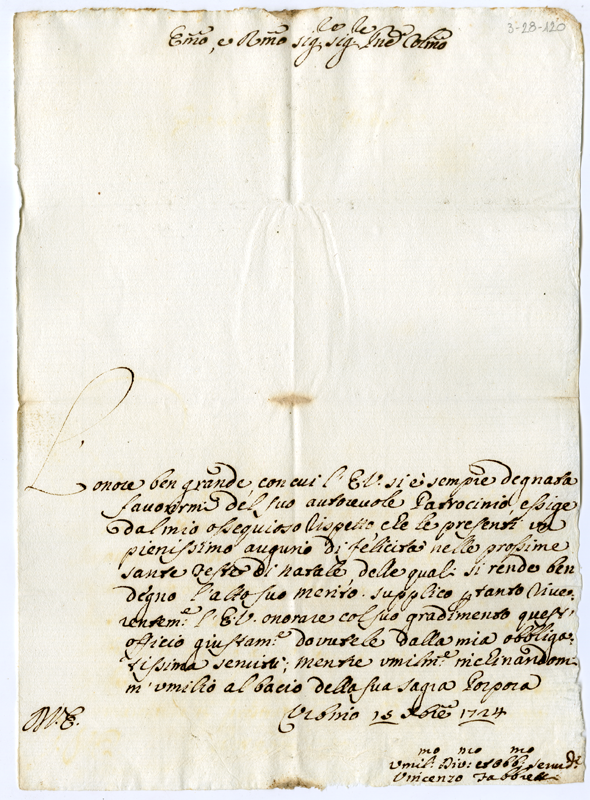 3-28-120
Emo, e Rmo Sigre Sigre Pne Colmo
L'onore ben grande, con cui l'E.V. si è sempre degnata
favorirmi del suo autorevole Patrocinio, essige
dal mio ossequioso rispetto che le presenti un
pienissimo augurio di felicità nelle prossime
sante feste di natale, delle quali si rende ben
degno l'alto suo merito. supplico rive-
rentemte l'E.V. onorare col suo gradimento quest'
officio giustamte dovutole dalla mia obbliga-
tissima servitù; mentre umilmte inclinandomi
m'umilio al bacio della sua sagra Porpora
Urbino 15 Xbre 1724
umilmo Divmo et obbmo servidre
Vincenzo